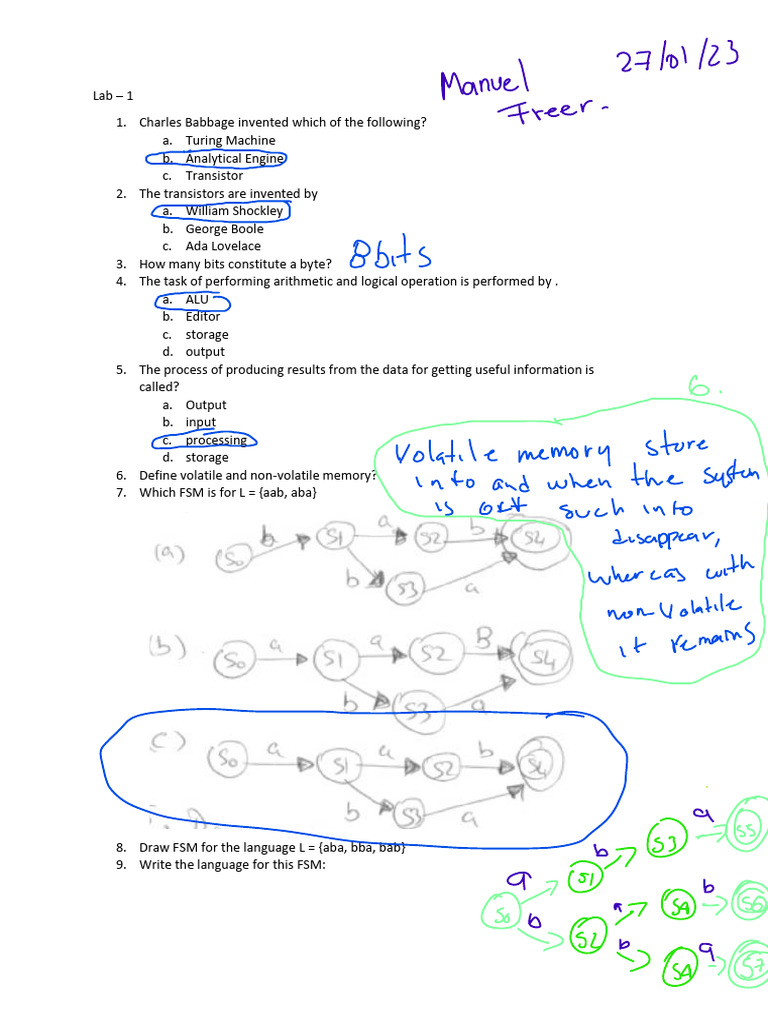 27/01/23
Manuel
Freer.
Lab – 1
1. Charles Babbage invented which of the following?
a. Turing Machine
b. Analytical Engine
c. Transistor
2. The transistors are invented by
a. William Shockley
b. George Boole
c. Ada Lovelace
3. How many bits constitute a byte? 8 bits
4. The task of performing arithmetic and logical operation is performed by .
a. ALU
b. Editor
c. storage
d. output
5. The process of producing results from the data for getting useful information is
called?
a. Output
b. input
c. processing
d. storage
6.
Volatile memory store
info and when the system
is off such info
disappear,
whereas with
non volatile
it remains
6. Define volatile and non-volatile memory?
7. Which FSM is for L = {aab, aba}
(a) S0 b S1 a S2 b S4
b S3 a
(b) S0 a S1 a S2 B S4
b S3 a
c) S0 a S1 a S2 b S4
b S3 a
8. Draw FSM for the language L = {aba, bba, bab}
9. Write the language for this FSM:
S0 a S1 b S3 a S5
b S2 S4 b S6
b S4 a S7